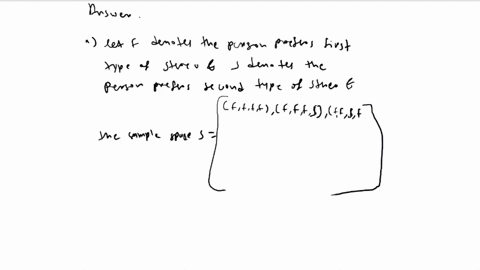 Answer.
a) let F denotes the person prefers first
type of stereo & S denotes the
person prefers second type of stereo &
the sample space S =
(f,f,f,f), (f,f,f,S), (f,f,S,f